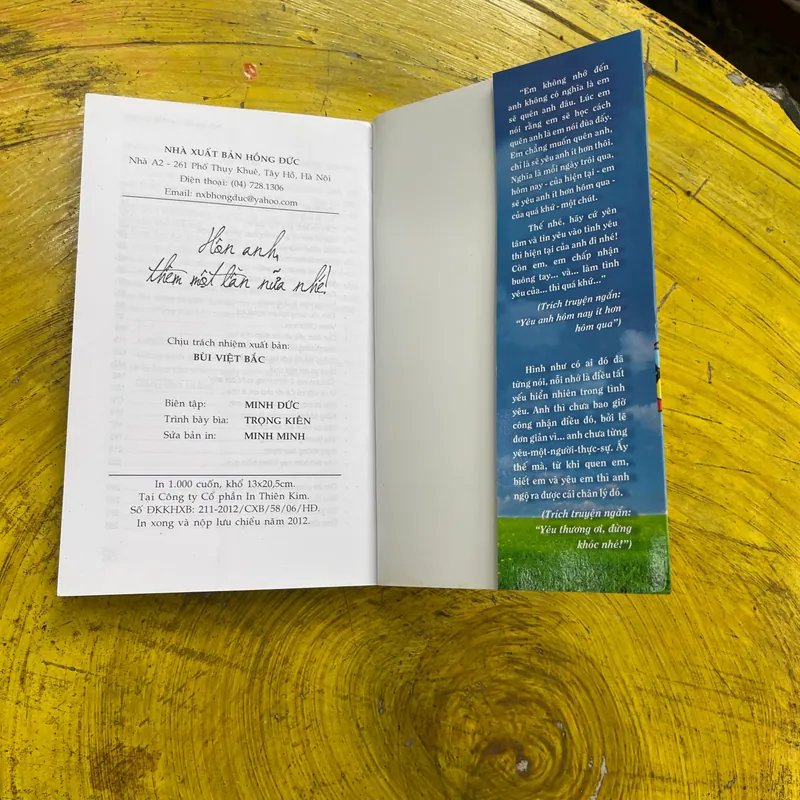 NHÀ XUẤT BẢN HỒNG ĐỨC
Nhà A2 - 261 Phố Thụy Khuê, Tây Hồ, Hà Nội
Điện thoại: (04) 728.1306
Email: nxbhongduc@yahoo.com
Hôn anh,
thêm một lần nữa nhé!
Chịu trách nhiệm xuất bản:
BÙI VIỆT BẮC
Biên tập: MINH ĐỨC
Trình bày bìa: TRỌNG KIÊN
Sửa bản in: MINH MINH
In 1.000 cuốn, khổ 13x20,5cm.
Tại Công ty Cổ phần In Thiên Kim.
Số ĐKKHXB: 211-2012/CXB/58/06/HĐ.
In xong và nộp lưu chiểu năm 2012.
"Em không nhớ đến
anh không có nghĩa là em
sẽ quên anh đâu. Lúc em
nói rằng em sẽ học cách
quên anh là em nói đùa đấy.
Em chẳng muốn quên anh,
chỉ là sẽ yêu anh ít hơn thôi.
Nghĩa là mỗi ngày trôi qua,
hôm nay - của hiện tại - em
sẽ yêu anh ít hơn hôm qua -
của quá khứ - một chút.
Thế nhé, hãy cứ yên
tâm và tin yêu vào tình yêu
thì hiện tại của anh đi nhé!
Còn em, em chấp nhận
buông tay... và... làm tình
yêu của... thì quá khứ..."
(Trích truyện ngắn:
"Yêu anh hôm nay ít hơn
hôm qua")
Hình như có ai đó đã
từng nói, nỗi nhớ là điều tất
yếu hiển nhiên trong tình
yêu. Anh thì chưa bao giờ
công nhận điều đó, bởi lẽ
đơn giản vì... anh chưa từng
yêu-một-người-thực-sự. Ấy
thế mà, từ khi quen em,
biết em và yêu em thì anh
ngộ ra được cái chân lý đó.
(Trích truyện ngắn:
"Yêu thương ơi, đừng
khóc nhé!")